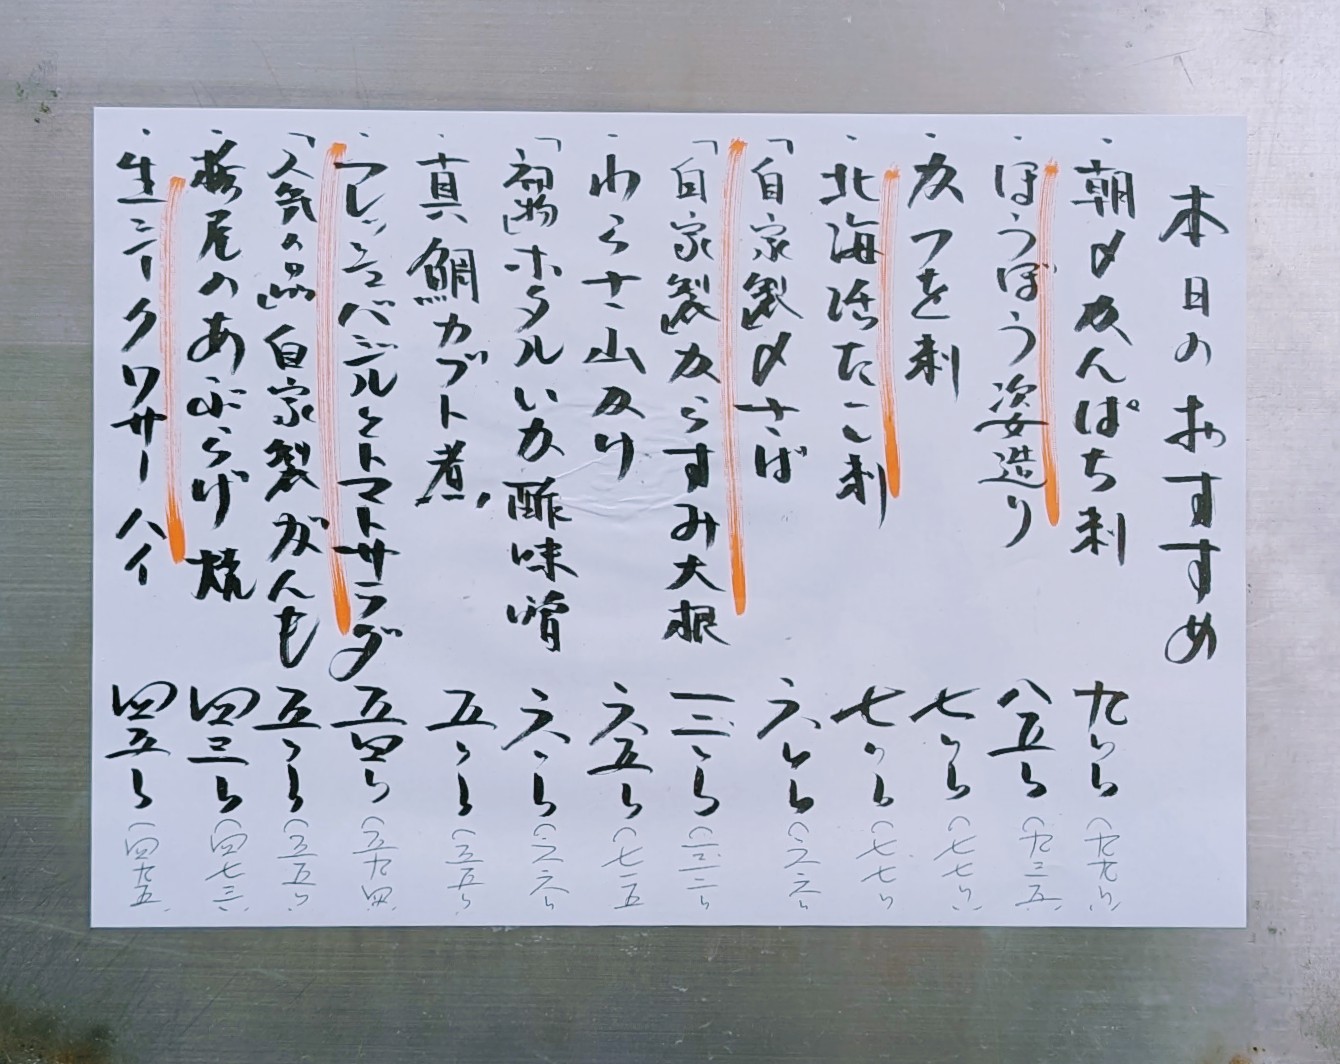 本日のおすすめ
・朝〆かんぱち刺 九〇〇 (九九〇)
・ほうぼう姿造り 八五〇 (九三五)
・かつを刺 七〇〇 (七七〇)
・北海活たこ刺 七〇〇 (七七〇)
・「自家製」〆さば 六〇〇 (六六〇)
・「自家製」からすみ大根 一二〇〇 (一三二〇)
・わらさ山かけ 六五〇 (七一五)
・「初物」ホタルいか酢味噌 六〇〇 (六六〇)
・真鯛カブト煮 五〇〇 (五五〇)
・フレッシュバジルとトマトサラダ 五四〇 (五九四)
・「人気の品」自家製がんも 五〇〇 (五五〇)
・栃尾のあぶらげ焼 四三〇 (四七三)
・生シークワサーハイ 四五〇 (四九五)